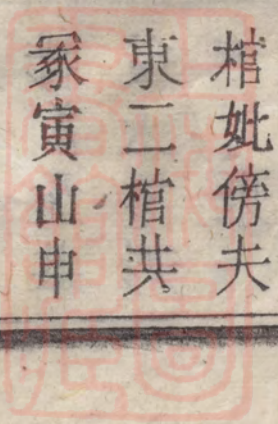 棺妣傍夫
東二棺共
冢寅山申